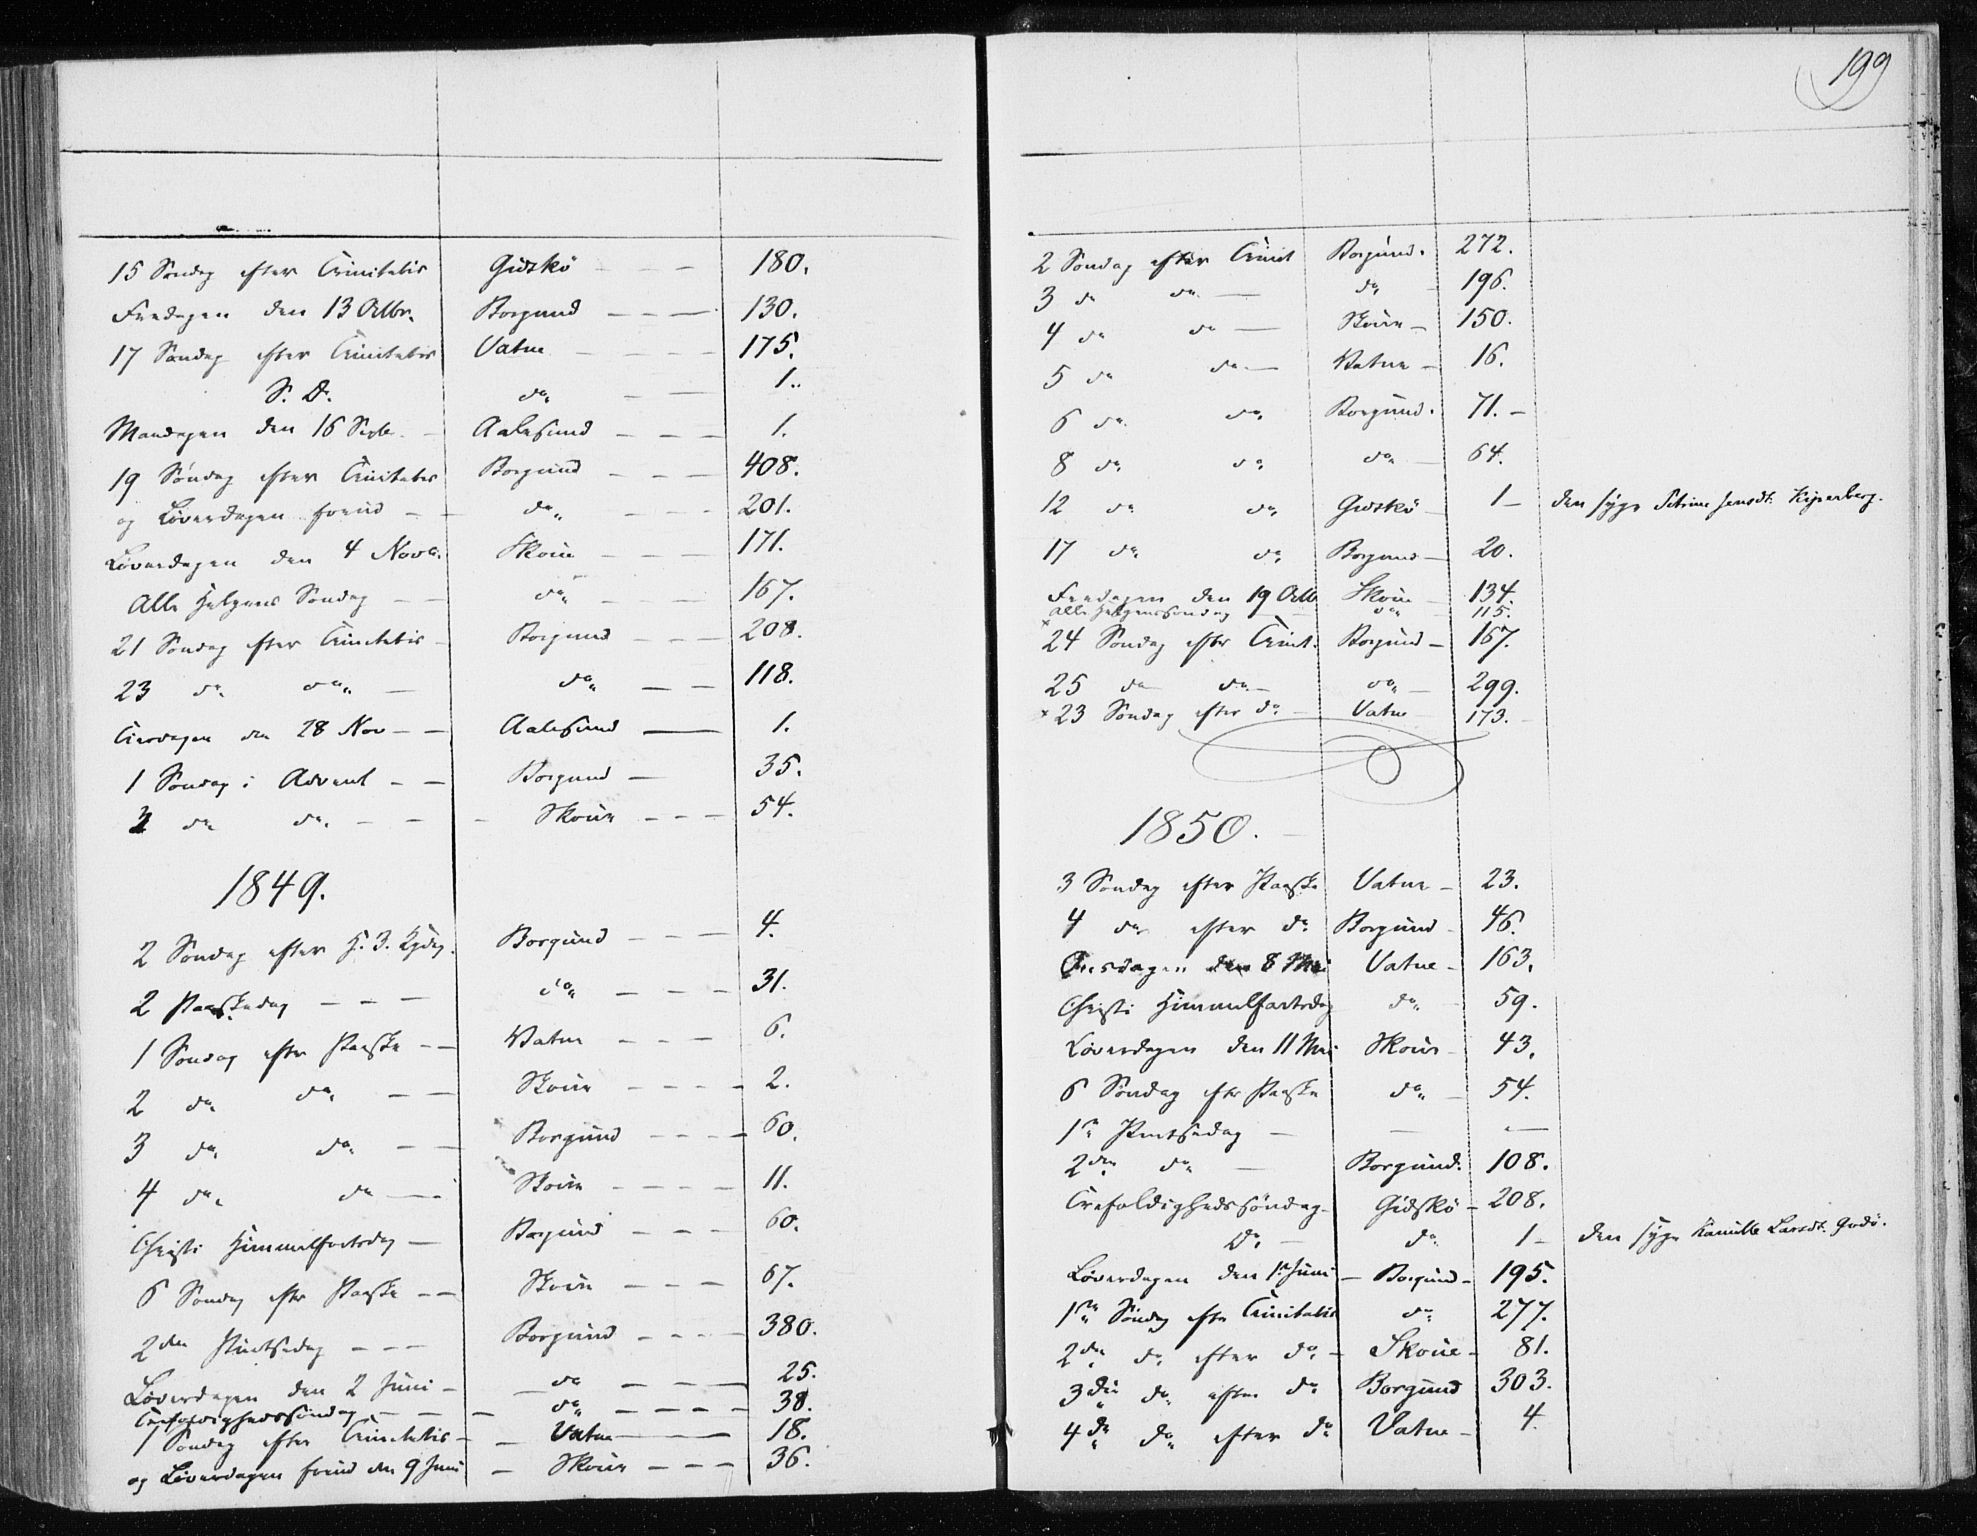 15 Søndag efter Trinitatis Gidskø - - 180.
Fredagen den 13 Octbr. Borgund - - - 130.
17 Søndag efter Trinitatis Vatne - - - 175.
S. D. do - - 1.
Mandagen den 16 - Aalesund - - - 1.
19 Søndag efter Trinitatis Borgund - - - 408.
og Løverdagen forud - - do - - - 201.
Løverdagen den 4 Novb. Skoue - - - 171.
Alle Helgens Søndag - - do - - - 167.
21 Søndag efter Trinitatis - Borgund - - - 208.
23 do do - do - - 118.
Tirsdagen den 28 Nov - - Aalesund - 1.
1 Søndag i Advent - - Borgund - 35.
do do - - - Skoue - - - 54.
1849.
2 Søndag efter H. 3. Kgdag. Borgund - - - 4.
2 Paaskedag - - - do - - - - 31.
1 Søndag efter Paaske - - Vatne - - - 6.
2 do do - - Skoue - - - - 2.
3 do do - - Borgund - - - - 60.
4 do do - Skoue - - - - 11.
Christi Himmelfartsdag - Borgund - - - 60.
6 Søndag efter Paaske - - Skoue - - - 67.
2den Pintsedag - - - Borgund - - - - 380.
Løverdagen den 2 Juni - do - - - 25.
Trefoldighedssøndag - - - do - - - - 38.
1 Søndag efter Trinitatis - - Vatne - - - 18.
og Løverdagen forud den 9 Juni - Skoue - - - 36.
199
2 Søndag efter Trinit Borgund. 272.
3 do do - do - 196.
4 do do - Skoue - 150.
5 do do - Vatne - 16.
6 do do Borgund. 71. -
8 do do do - 64.
12 do do Gidskø - 1 - den syge Petrine Jensdt. Kiperberg.
17 do do Borgund - 20.
Fredagen den 19 Octb Skoue - 134.
Alle Helgenssøndag - do 115.
* 24 Søndag efter Trinit. Borgund - 167.
25 do do - do - 299.
* 23 Søndag efter do - Vatne 173. -
1850. -
3 Søndag efter Paaske Vatne - 23.
4 do efter do Borgund - 46.
Onsdagen den 8 Mai Vatne - 163.
Christi Himmelfartsdag do - 59.
Løverdagen den 11 Mai Skoue - 43.
6 Søndag efter Paaske do - 54.
1e Pintsedag - - -
2den do - Borgund. 108.
Trefoldighedssøndag - Gidskø - 208.
Do - do 1 - den syge Larsdt. Godø.
Løverdagen den 1e Juni - Borgund - 195.
1ste Søndag efter Trinitatis do 277.
2den do efter do - Skoue - 81.
3die do efter do Borgund 303.
4de do efter do Vatne - 4.